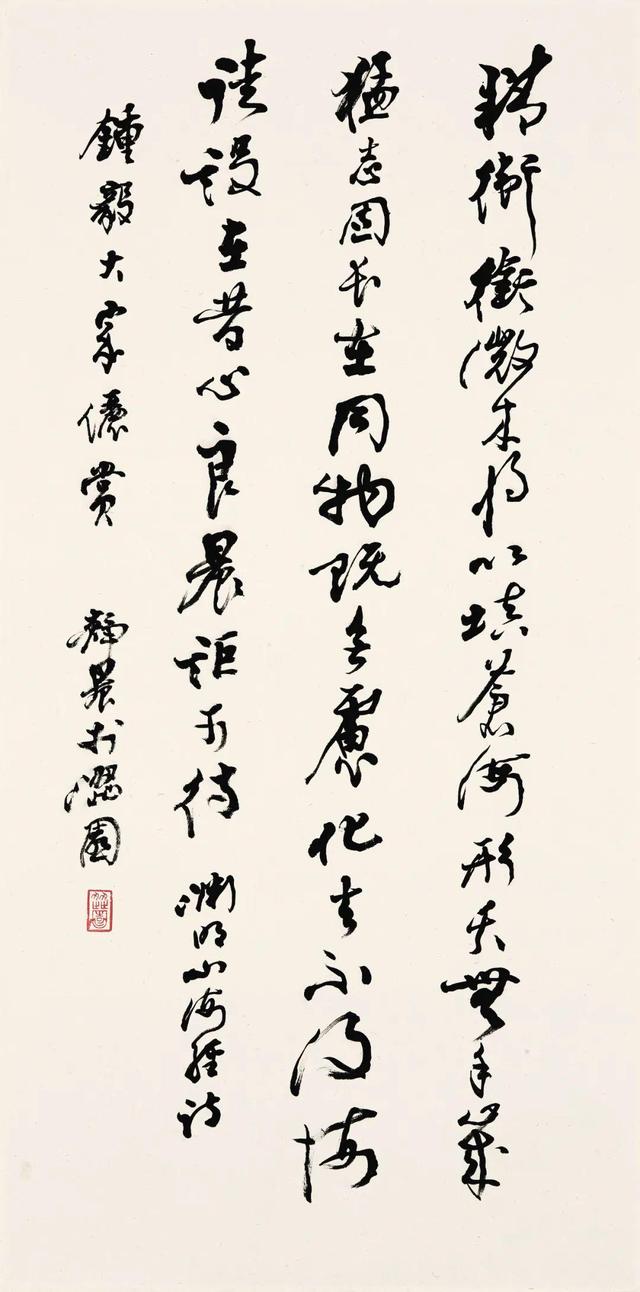 精衛銜微木將以填蒼海形夭無千歲
猛志固長在同物既無慮化去不復悔
徒設在昔心良晨詎可待 淵明山海經詩
鍾毅大家儷賞 靜農於園